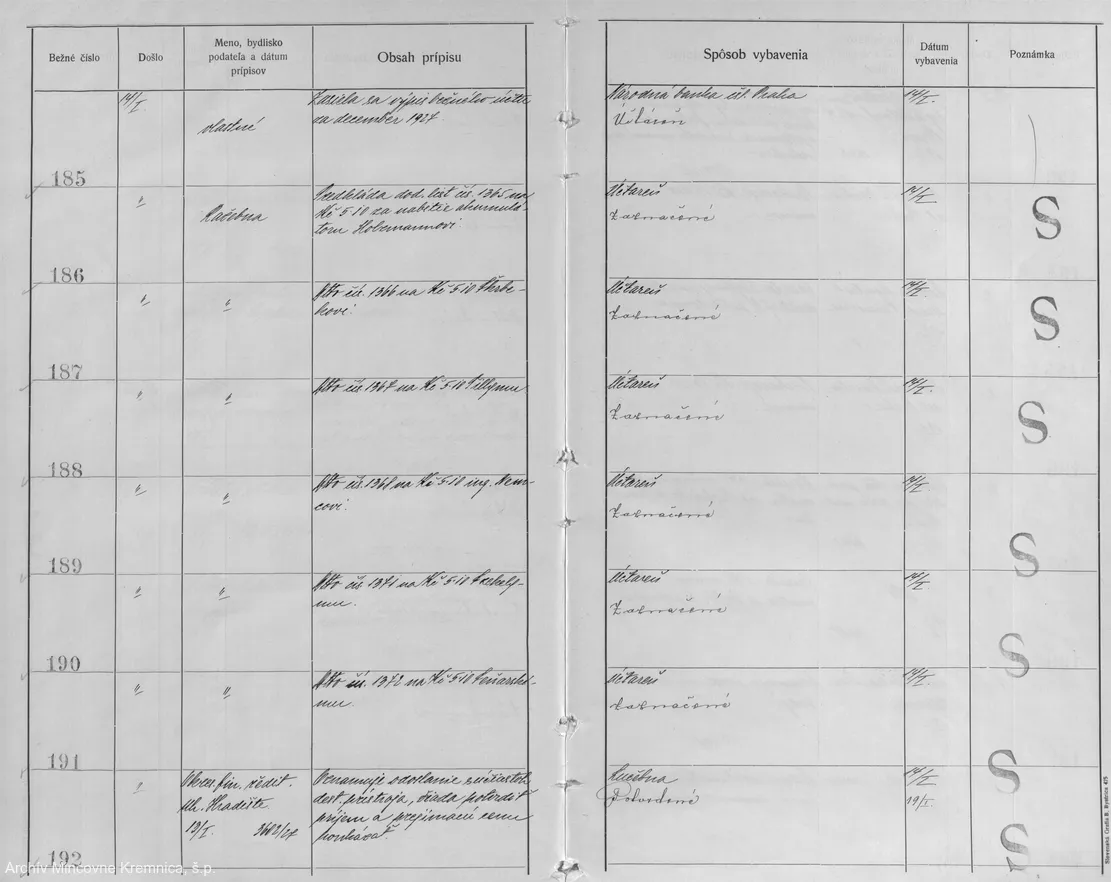 Bežné číslo
Došlo
Meno, bydlisko
podateľa a dátum
prípisov
Obsah prípisu
Spôsob vybavenia
Dátum
vybavenia
Poznámka
14/I
vlastné
Zasiela sa výpis bežného účtu
za december 1927
Národna banka čsl. Praha
Účtáreň
14/I.
185
"
Lučebna
Predkláda dod. list čís. 1365 na
Kč 5·10 za nabitie akumulá-
toru
Účtareň
Zaznačené
14/I.
S
186
"
"
Dtto čís. 1366 na Kč 5·10
Účtareň
Zaznačené
14/I.
S
187
"
"
Dtto čís. 1367 na Kč 5·10
Účtareň
Zaznačené
14/I.
S
188
"
"
Dtto čís. 1368 na Kč 5·10 ing. Nem-
covi.
Účtareň
Zaznačené
14/I.
S
189
"
"
Dtto čís. 1371 na Kč 5·10
Účtareň
Zaznačené
14/I.
S
190
"
"
Dtto čís. 1372 na Kč 5·10
Účtareň
Zaznačené
14/I.
S
191
"
uh. Hradište
13/I. 3602/27
Oznamuje odoslanie
dest. prístroja, žiada potvrdiť
príjem a
Lučebna
Potvrdené
14/I.
19/I.
S
192
S
Slovenská Grafia B. Bystrica 475
Archív Mincovne Kremnica, š.p.